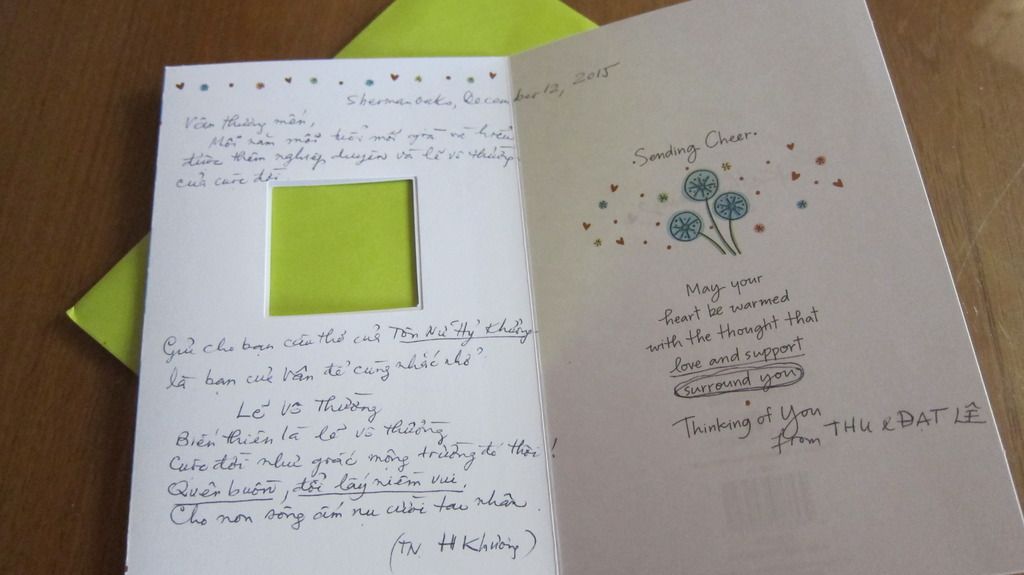 Sherman Oaks, December 12, 2015
Vân thương mến,
Mỗi năm mỗi tuổi mỗi già và hiểu
được thêm nghiệp duyên và lẽ vô thường
của cuộc đời.
Gửi cho bạn câu thơ của Tôn Nữ Hỷ Khương
là bạn của Vân để cùng nhắc nhở
Lẽ Vô Thường
Biến thiên là lẽ vô thường
Cuộc đời như giấc mộng trường đó thôi!
Quên buồn, đổi lấy niềm vui,
Cho non sông ấm nụ cười tao nhân.
(TN H Khương)
Sending Cheer.
May your
heart be warmed
with the thought that
love and support
surround you
Thinking of You
from THU & ĐẠT LÊ